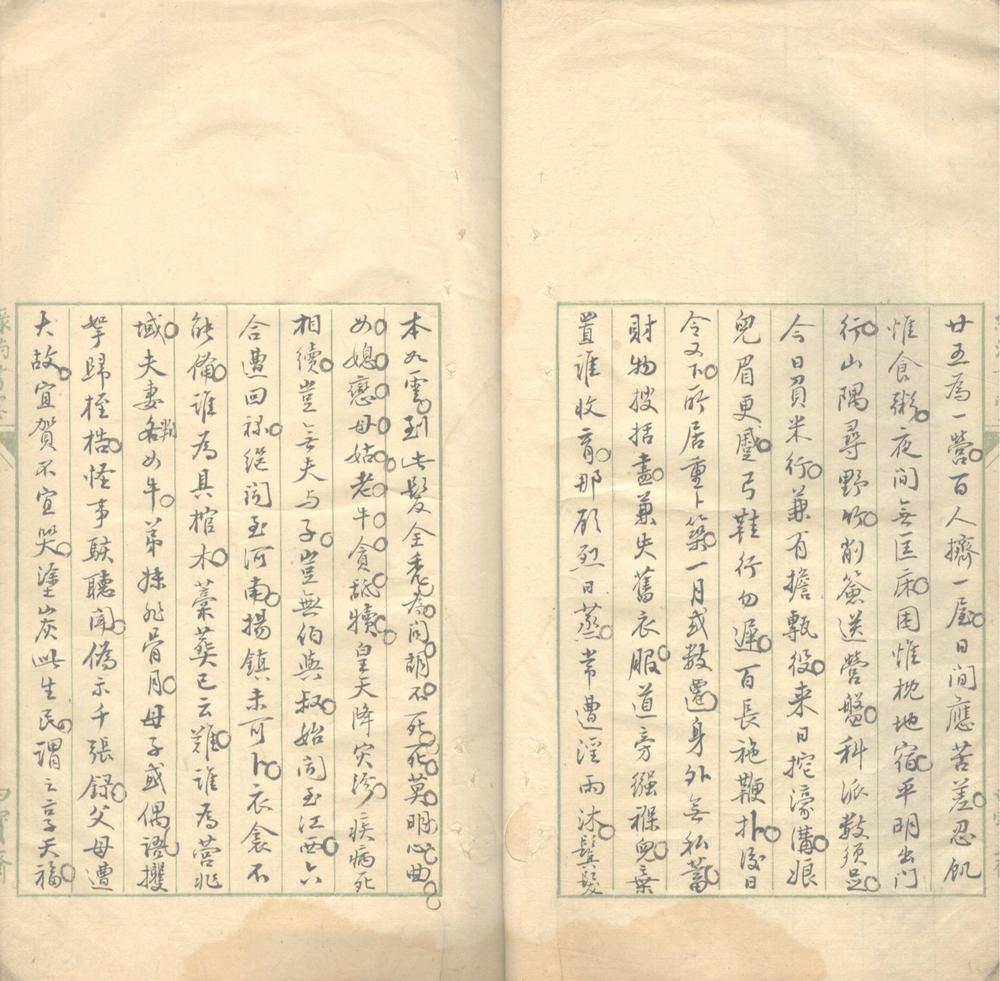 廿五為一營百人擠一屋日間應苦差忍飢
惟食粥夜間無匡床困惟枕地宿平明出門
行山隅尋野竹削簽送營盤科派數須足
今日負米行兼有擔甎役来日挖濠溝娘
兒眉更蹙弓鞋行勿遲百長施鞭扑後日
令又下所居重卜築一月或数遷身外無私蓄
財物搜括盡兼失舊衣服道旁襁褓兒棄
置誰收育那顧烈日蒸常遭淫雨沐鬢髮
本如雲到此髮全禿為問胡不死死莫明心曲
如媳戀母姑老牛貪舐犢皇天降灾沴疾病死
相續豈無夫与子豈無伯與叔始闻至江西六
合遭回禄继闻至河南揚鎮未可卜衣衾不
能備誰為具棺木藁葬已云難誰為營兆
域夫妻各如牛弟妹非骨月母子或偶語攫
拏歸桎梏怪事駭聽闻偽示千張錄父母遭
大故宜賀不宜哭塗炭此生民謂之享天福